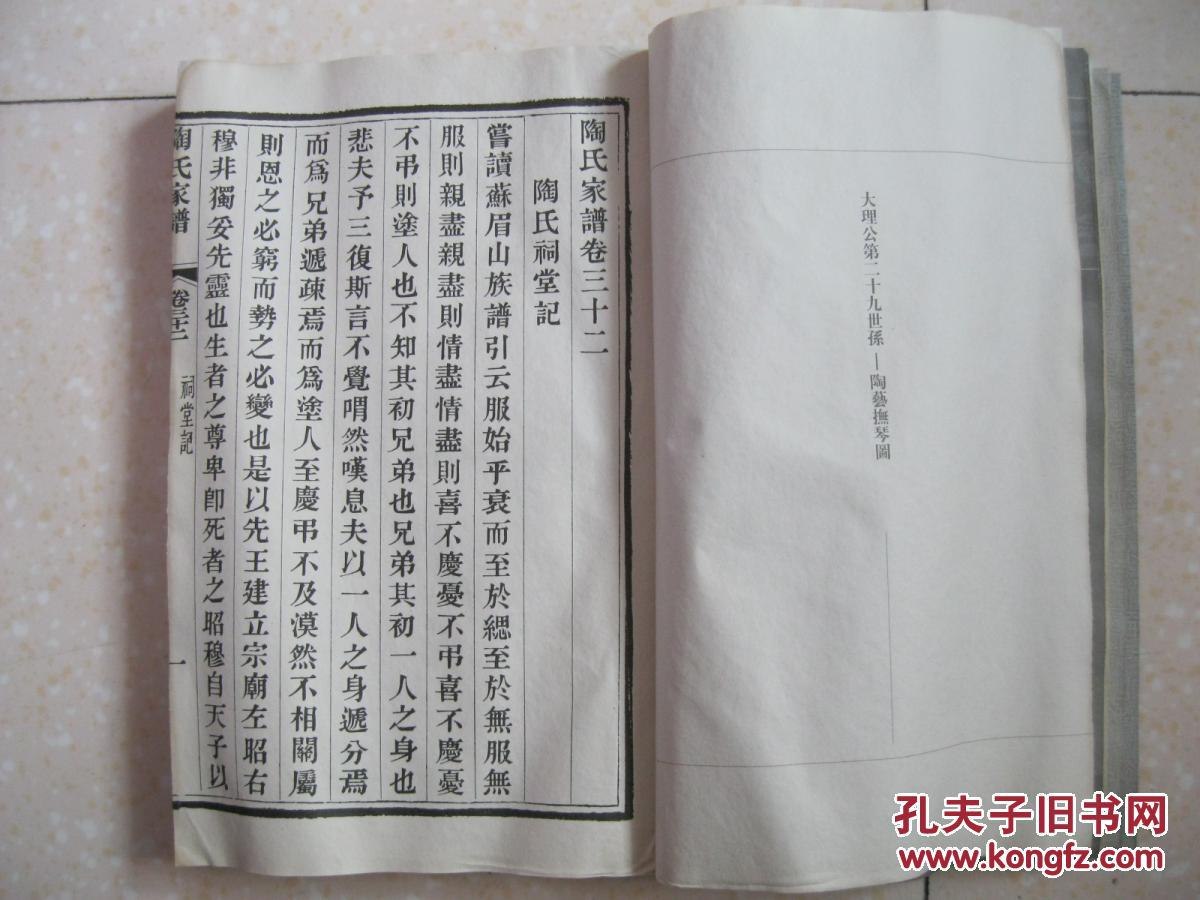 大理公第二十九世孫—陶藝撫琴圖
陶氏家譜卷三十二
陶氏祠堂記
嘗讀蘇眉山族譜引云服始乎衰而至於緦至於無服無
服則親盡親盡則情盡情盡則喜不慶憂不弔喜不慶憂
不弔則塗人也不知其初兄弟也兄弟其初一人之身也
悲夫予三復斯言不覺喟然嘆息夫以一人之身遞分焉
而爲兄弟遞疎焉而爲塗人至慶弔不及漠然不相關屬
則恩之必窮而勢之必變也是以先王建立宗廟左昭右
穆非獨妥先靈也生者之尊卑卽死者之昭穆自天子以
陶氏家譜
卷三十二
祠堂記
一
孔夫子旧书网
www.kongfz.com